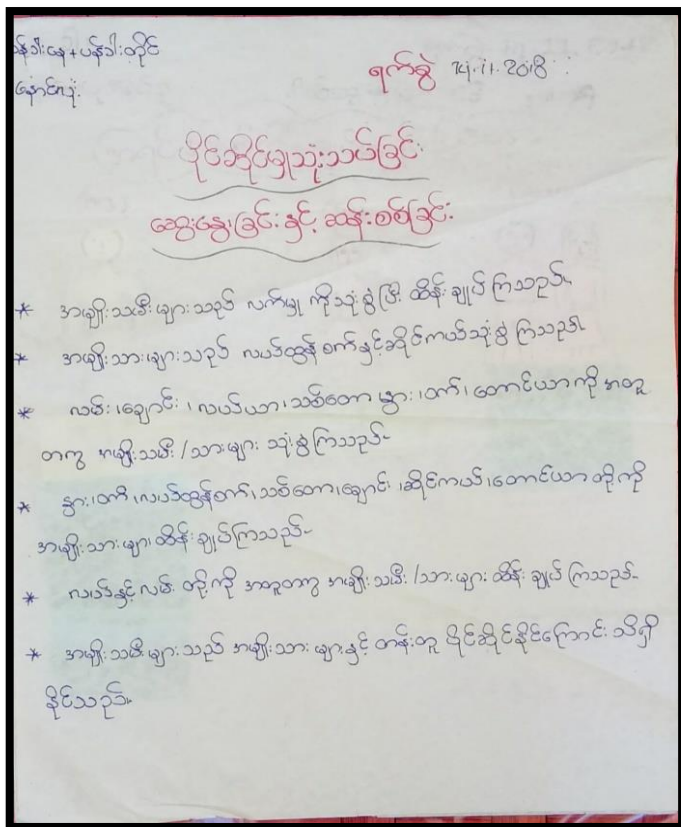 ပန်ဒါးနေ+ပန်ဒါးတိုင်
နောင်လုံး
ရက်စွဲ 14.11.2018
ပိုင်ဆိုင်မှုသုံးသပ်ခြင်း
ဆွေးနွေးခြင်းနှင့် ဆန်းစစ်ခြင်း
* အမျိုးသမီးများသည် လက်မှု ကိုသုံးစွဲပြီး ထိန်းချုပ်ကြသည်။
* အမျိုးသားများသည် လယ်ထွန်စက်နှင့်ဆိုင်ကယ်သုံးစွဲကြသည်။
* လမ်း၊ချောင်း၊လယ်ယာ၊သစ်တော၊နွား၊ဝက်၊တောင်ယာကို အတူ
တကွ အမျိုးသမီး/သားများ သုံးစွဲကြသည်။
* နွား၊ဝက်၊လယ်ထွန်စက်၊သစ်တော၊ချောင်း၊ဆိုင်ကယ်၊တောင်ယာ တို့ကို
အမျိုးသားများထိန်းချုပ်ကြသည်။
* လယ်နှင့်လမ်း တို့ကို အတူတကွ အမျိုးသမီး/သားများ ထိန်းချုပ်ကြသည်။
* အမျိုးသမီးများသည် အမျိုးသားများနှင့် တန်းတူ ပိုင်ဆိုင်နိုင်ကြောင်း သိရှိ
နိုင်သည်။